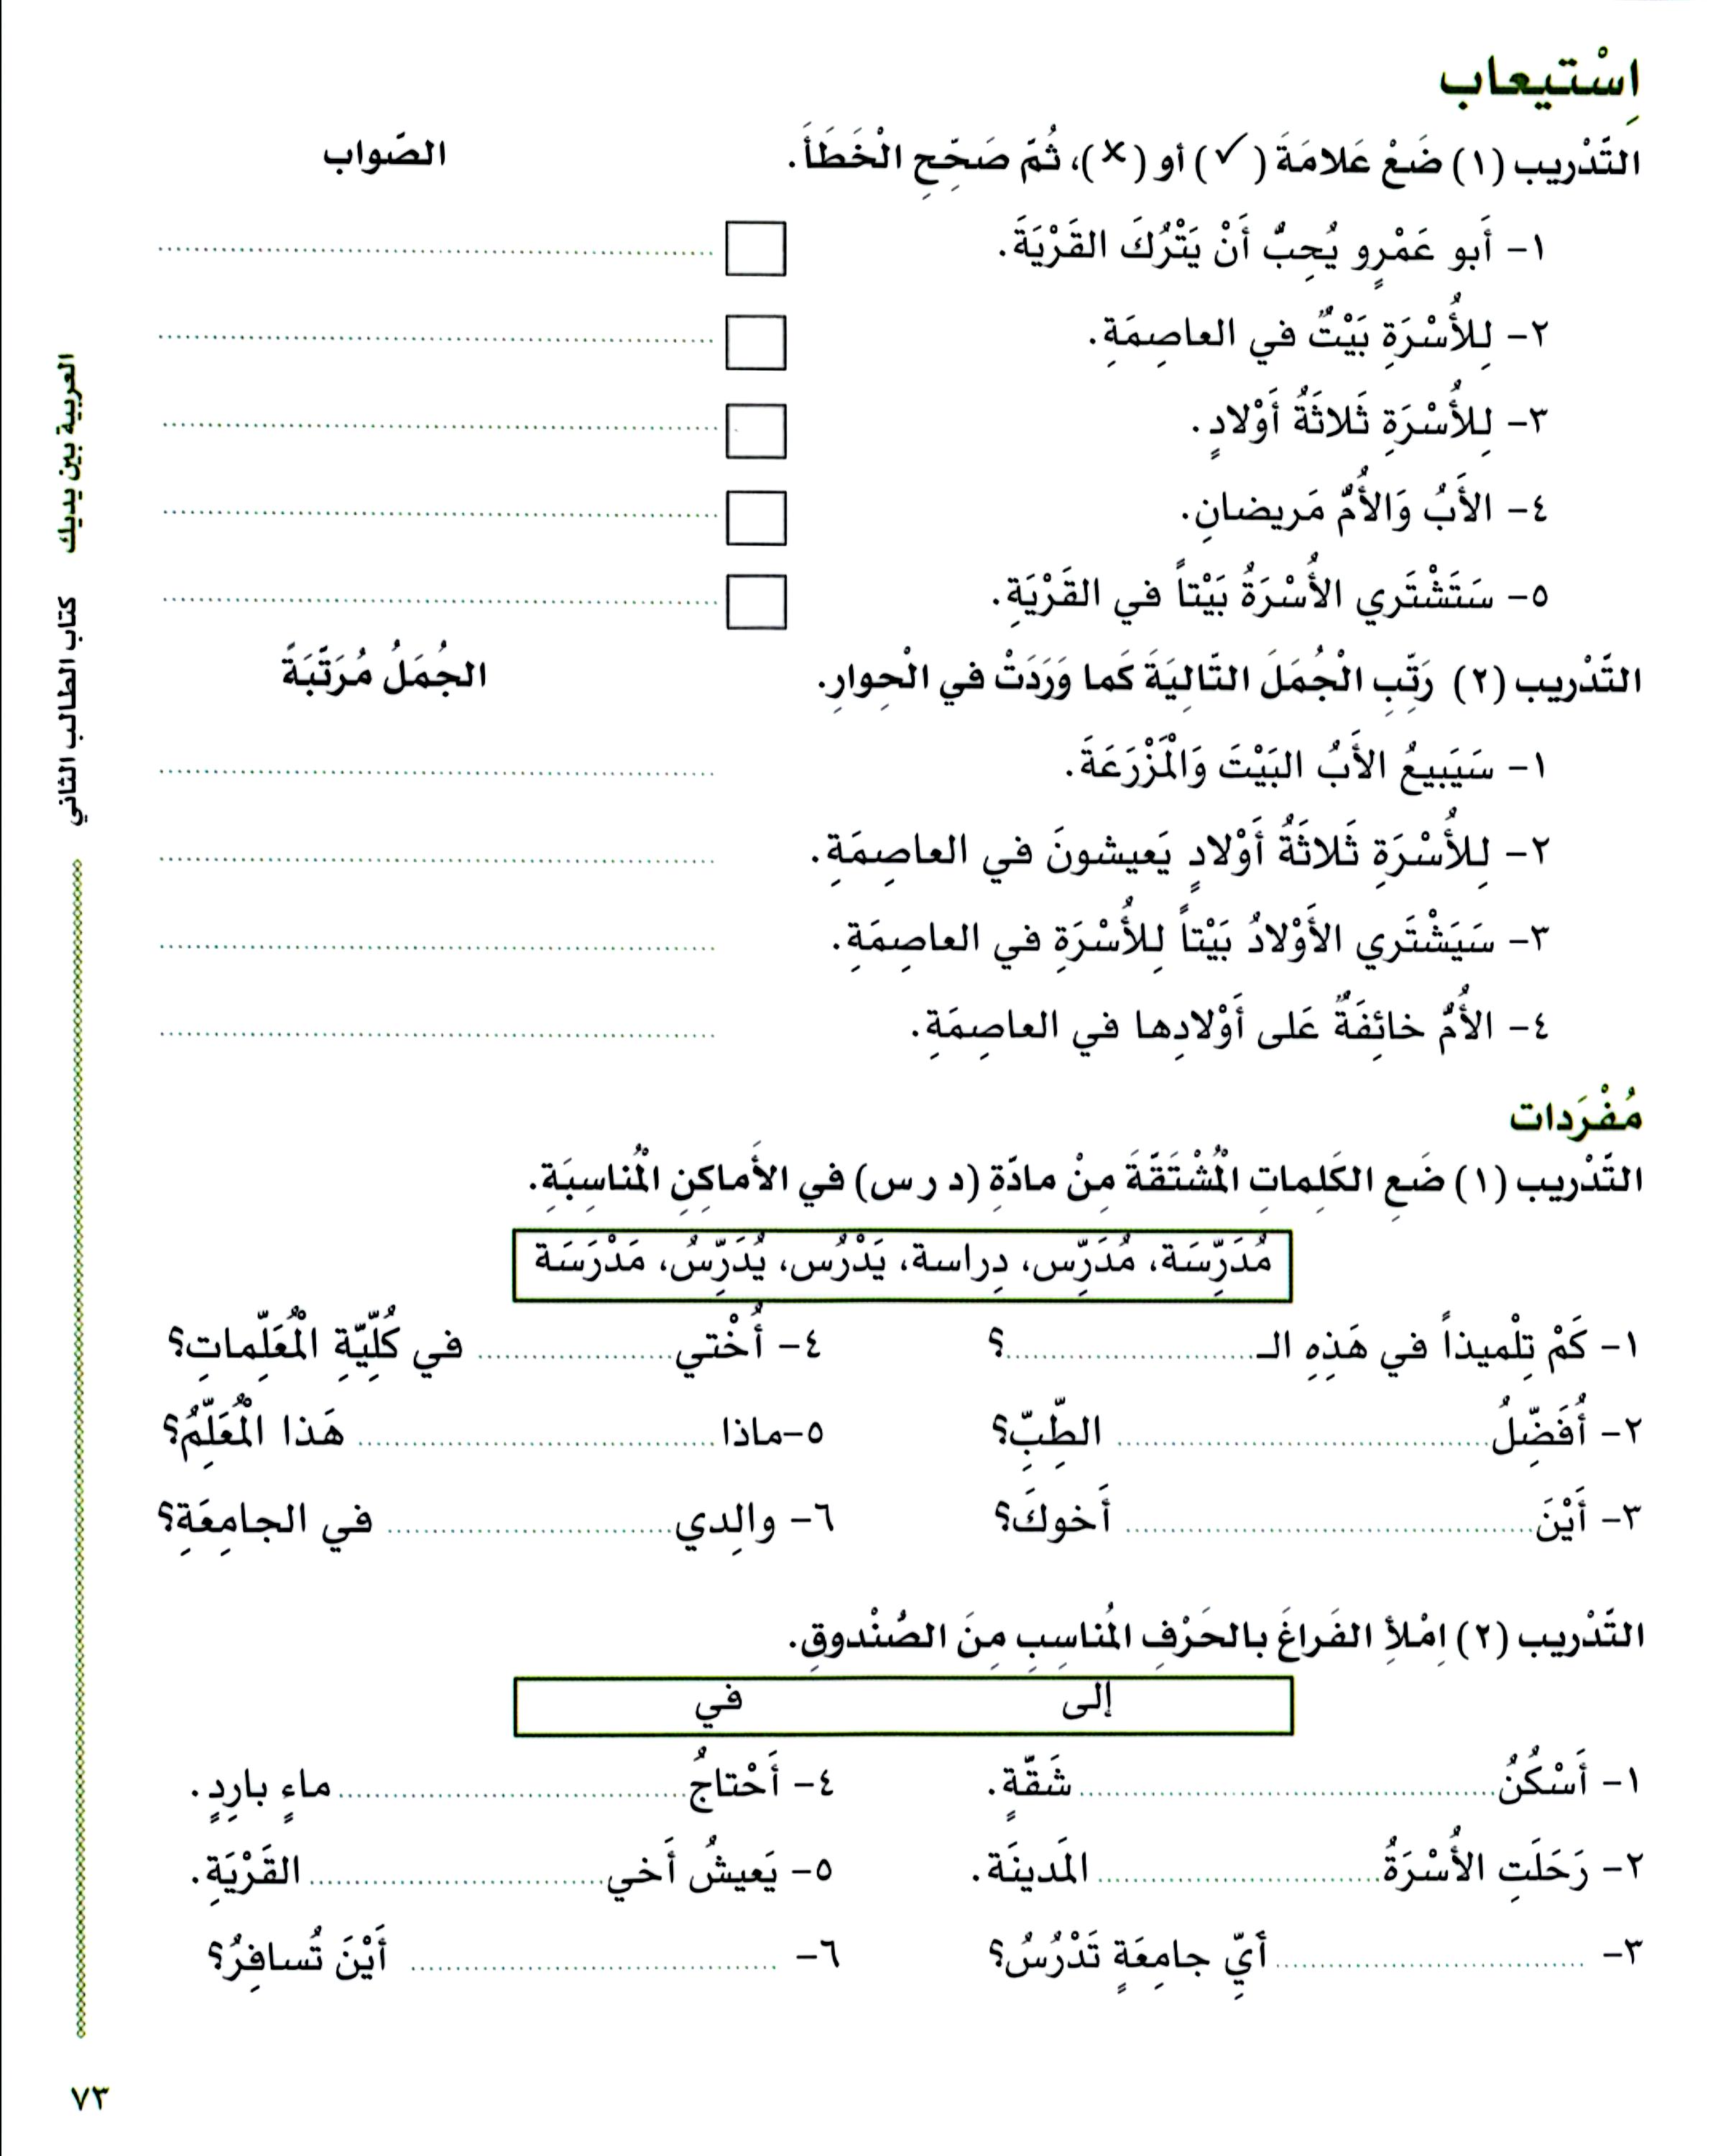 اِسْتيعاب
التَّدْريب (١) ضَعْ عَلامَةَ (✓) أو (×)، ثُمَّ صَحِّحِ الْخَطَأَ. الصَّواب
١- أَبو عَمْرٍو يُحِبُّ أَنْ يَتْرُكَ القَرْيَةَ. ........
٢- لِلأُسْرَةِ بَيْتٌ في العاصِمَةِ. ........
٣- لِلأُسْرَةِ ثَلاثَةُ أَوْلادٍ. ........
٤- الأَبُ وَالأُمُّ مَريضانِ. ........
٥- سَتَشْتَري الأُسْرَةُ بَيْتاً في القَرْيَةِ. ........
التَّدْريب (٢) رَتِّبِ الْجُمَلَ التَّالِيَةَ كَما وَرَدَتْ في الْحِوارِ. الجُمَلُ مُرَتَّبَةً
١- سَيَبيعُ الأَبُ البَيْتَ وَالْمَزْرَعَةَ. ........
٢- لِلأُسْرَةِ ثَلاثَةُ أَوْلادٍ يَعيشونَ في العاصِمَةِ. ........
٣- سَيَشْتَري الأَوْلادُ بَيْتاً لِلأُسْرَةِ في العاصِمَةِ. ........
٤- الأُمُّ خائِفَةٌ عَلى أَوْلادِها في العاصِمَةِ. ........
مُفْرَدات
التَّدْريب (١) ضَعِ الكَلِمات الْمُشْتَقَّةَ مِنْ مادَّةِ (د ر س) في الأَماكِنِ الْمُناسِبَةِ.
مُدَرِّسَة، مُدَرِّس، دِراسة، يَدْرُس، يُدَرِّسُ، مَدْرَسَة
١- كَمْ تِلْميذاً في هَذِهِ الـ ........؟ ٤- أُخْتي ........ في كُلِّيَّةِ الْمُعَلِّماتِ؟
٢- أُفَضِّلُ ........ الطِّبِّ؟ ٥-ماذا ........ هَذا الْمُعَلِّمُ؟
٣- أَيْنَ ........ أَخوكَ؟ ٦- والِدي ........ في الجامِعَةِ؟
التَّدْريب (٢) اِمْلأِ الفَراغَ بالحَرْفِ المُناسِبِ مِنَ الصُّنْدوقِ.
إلى في
١- أَسْكُنُ ........ شَقَّةٍ. ٤- أَحْتاجُ ........ ماءٍ بارِدٍ.
٢- رَحَلَتِ الأُسْرَةُ ........ المَدينَة. ٥- يَعيشُ أَخي ........ القَرْيَةِ.
٣- ........ أيِّ جامِعَةٍ تَدْرُسُ؟ ٦- ........ أَيْنَ تُسافِرُ؟
العربية بين يديك كتاب الطالب الثاني
٧٣